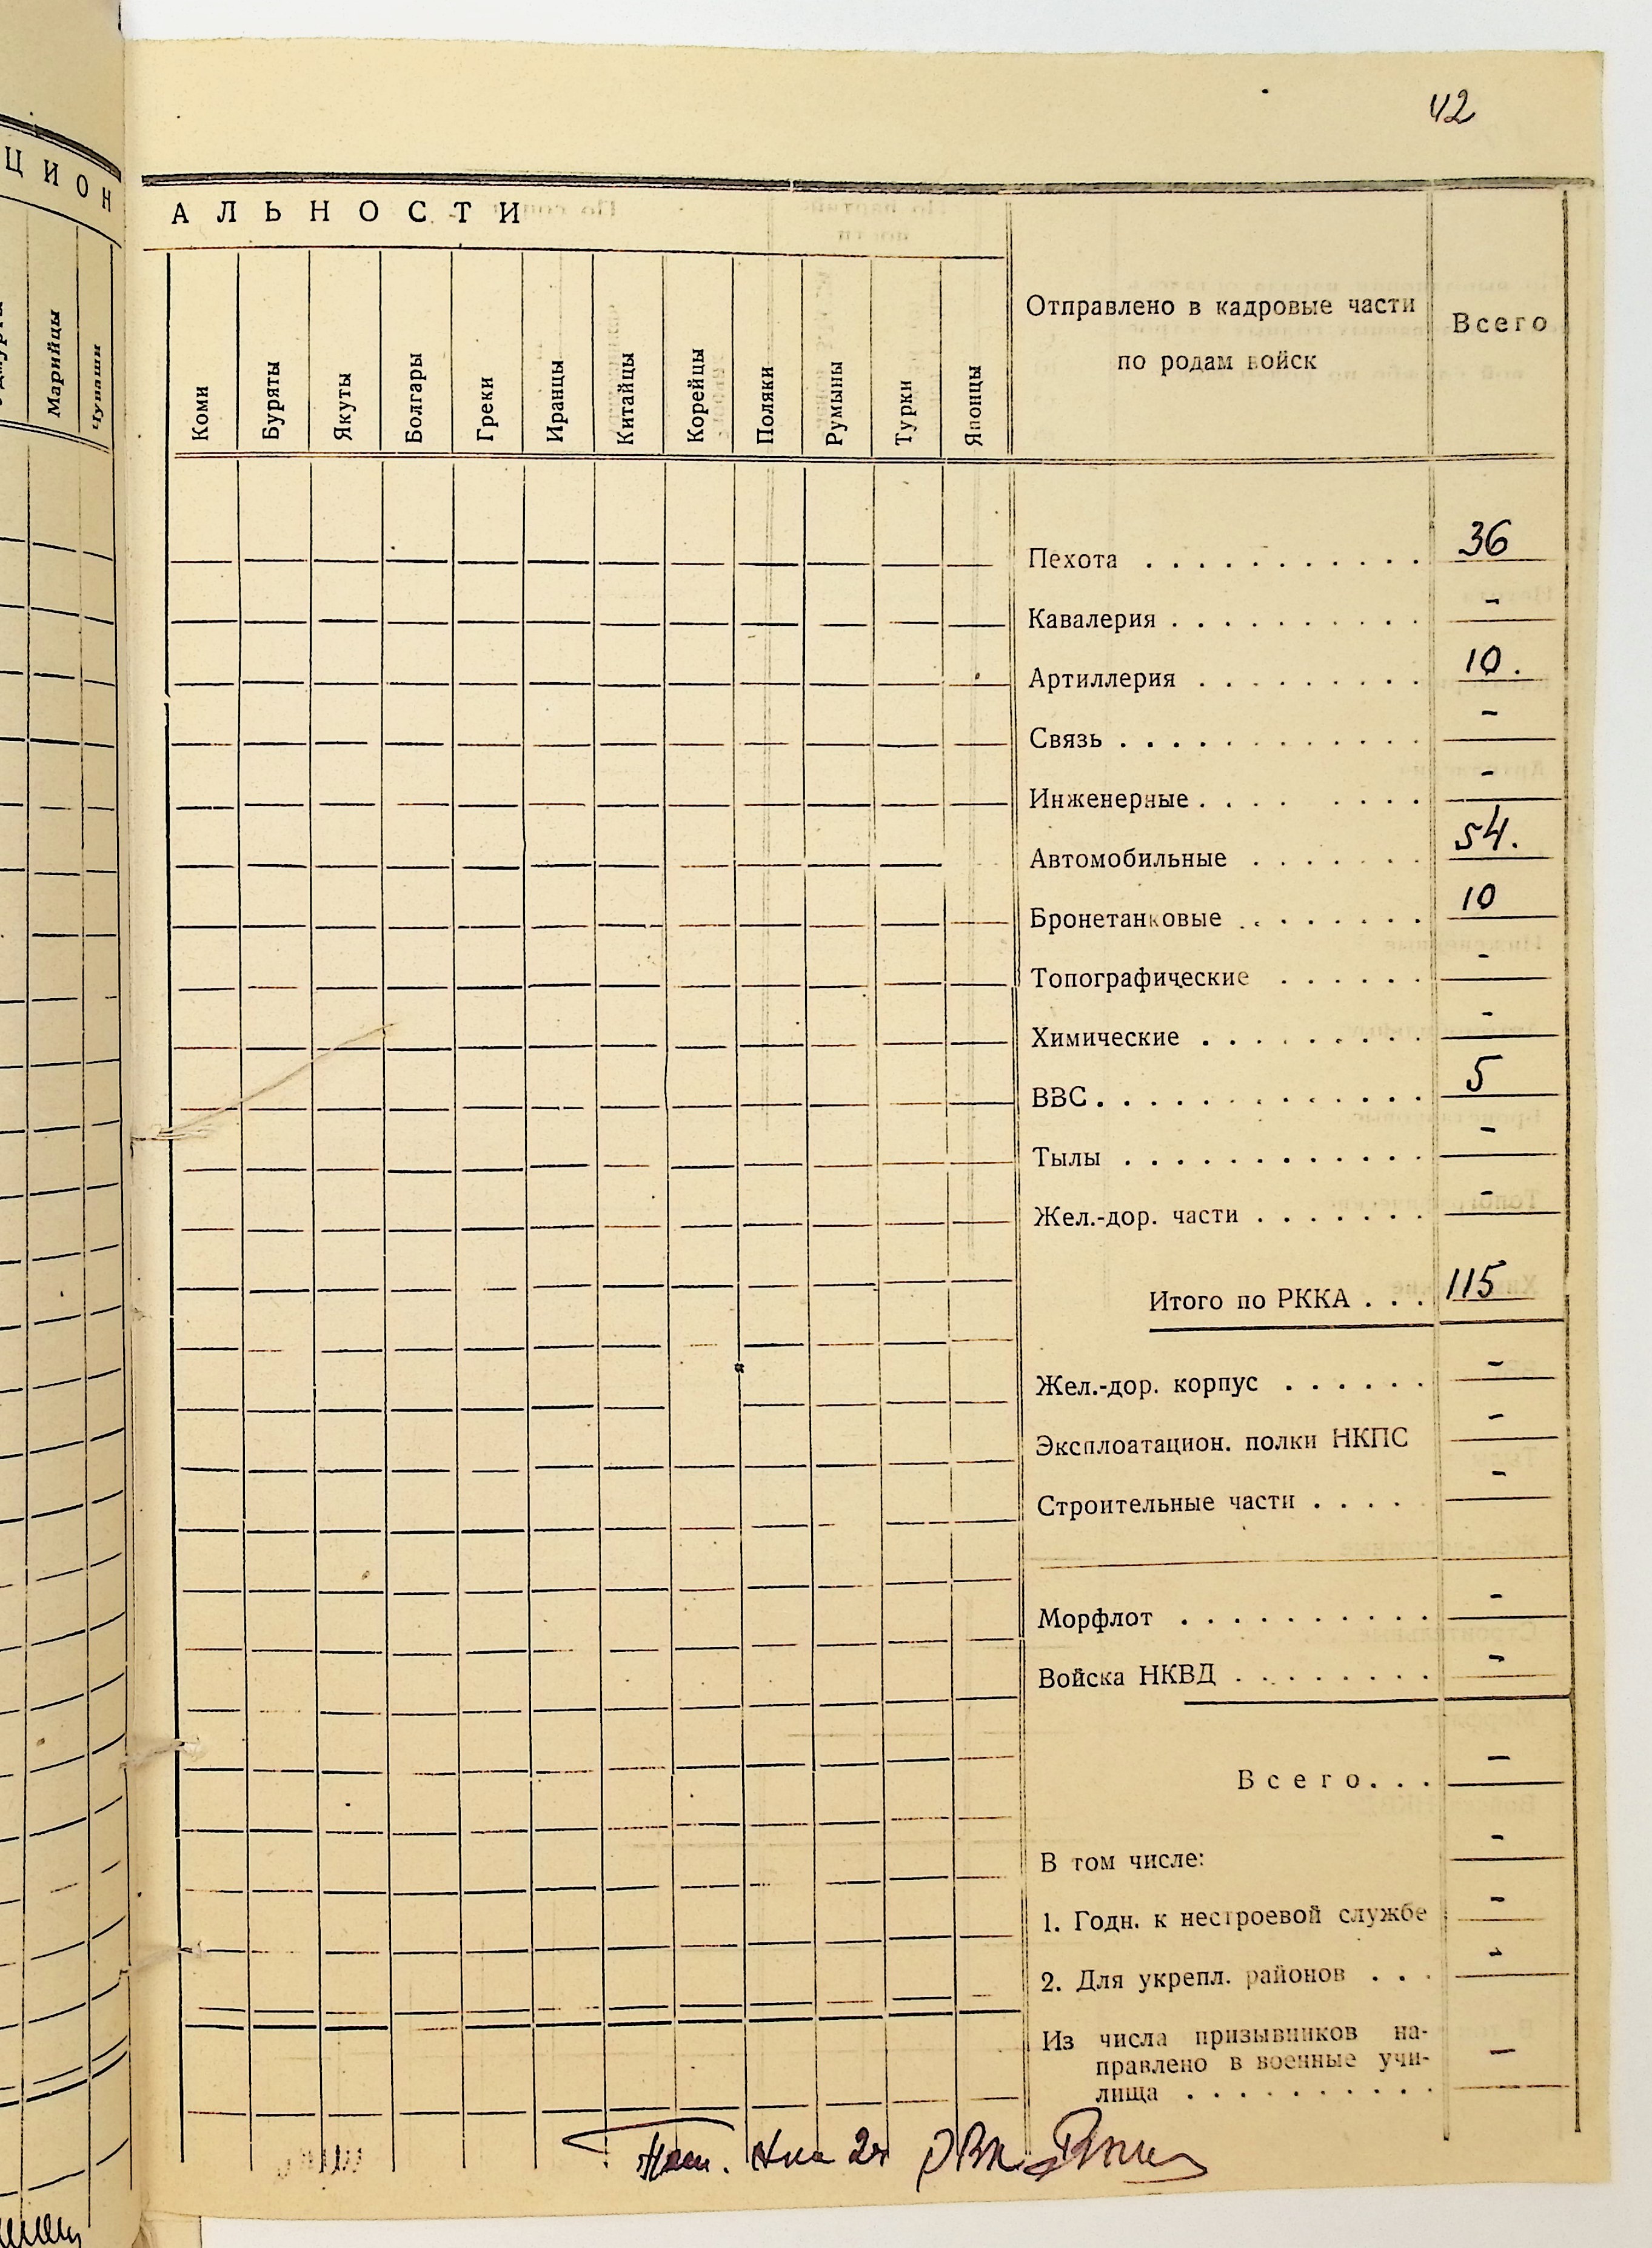 42
ЦИОН
АЛЬНОСТИ
Марийцы
Чуваши
Коми
Буряты
Якуты
Болгары
Греки
Иранцы
Китайцы
Корейцы
Поляки
Румыны
Турки
Японцы
Отправлено в кадровые части
по родам войск
Всего
Пехота . . . . . . . . . . . 36
Кавалерия . . . . . . . . . . -
Артиллерия . . . . . . . . . 10.
Связь . . . . . . . . . . . . -
Инженерные . . . . . . . . -
Автомобильные . . . . . . . 54.
Бронетанковые . . . . . . . . 10
Топографические . . . . . . -
Химические . . . . . . . . . -
ВВС . . . . . . . . . . . . . 5
Тылы . . . . . . . . . . . . -
Жел.-дор. части . . . . . . . -
Итого по РККА . . . 115
Жел.-дор. корпус . . . . . . -
Эксплоатацион. полки НКПС -
Строительные части . . . . . -
Морфлот . . . . . . . . . . -
Войска НКВД . . . . . . . . -
Всего . . . -
В том числе: -
1. Годн. к нестроевой службе -
2. Для укрепл. районов . . . -
Из числа призывников на-
правлено в военные учи-
лища . . . . . . . . . . -
Нач. 2ч РВК